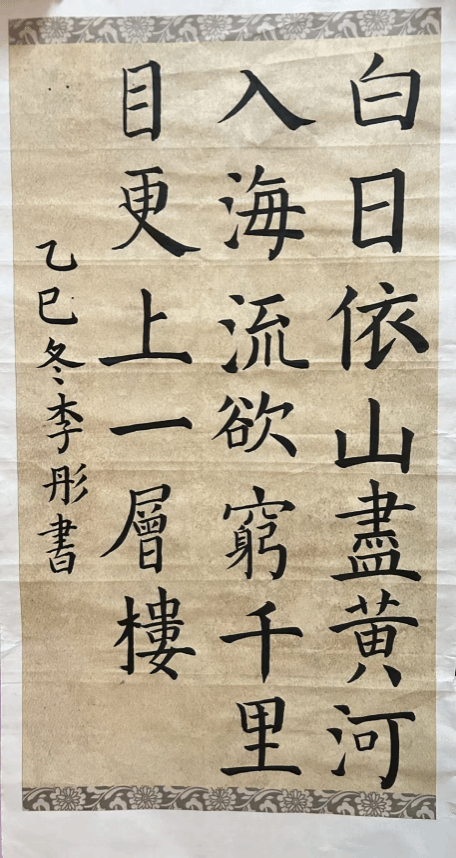 白日依山盡黄河
入海流欲窮千里
目更上一層樓
乙巳冬李彤書